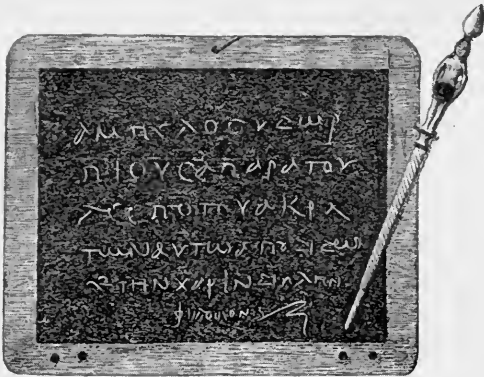 αμπελοσυδωρ
πιουσαπαρατου
δεσποτουακρα
τωναυτωαποδιδωσ
ιτηνχαρινδιπλην